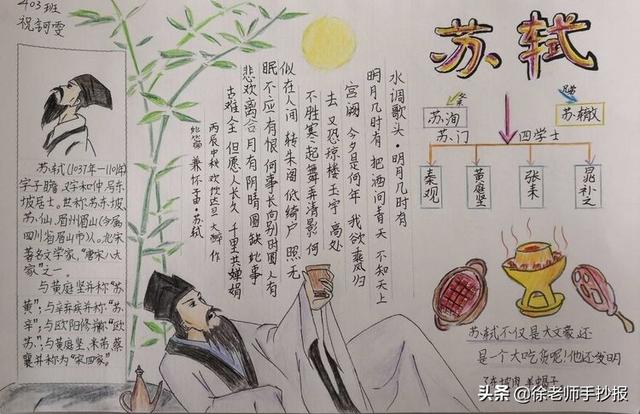 403班
祝诃雯
苏轼(1037年-1101年)
字子瞻、又字和仲,号东
坡居士。世称苏东坡、
苏仙,眉州眉山(今属
四川省眉山市)人。北宋
著名文学家,"唐宋八大
家"之一。
与黄庭坚并称"苏
黄";与辛弃疾并称"苏
辛";与欧阳修并称"欧
苏";与黄庭坚、米芾、蔡
襄并称为"宋四家"。
水调歌头·明月几时有
明月几时有 把酒问青天 不知天上
宫阙 今夕是何年 我欲乘风归
去 又恐琼楼玉宇 高处
不胜寒 起舞弄清影 何
似在人间 转朱阁 低绮户 照无
眠 不应有恨 何事长向别时圆 人有
悲欢离合 月有阴晴圆缺 此事
古难全 但愿人长久 千里共婵娟
丙辰中秋 欢饮达旦 大醉 作
此篇 兼怀子由·苏轼
苏轼
苏洵
苏辙
苏门
四学士
秦观
黄庭坚
张耒
晁补之
苏轼不仅是大文豪,还
是一个大吃货呢!他还发明
了东坡肉、羊蝎子
头条@徐老师手抄报